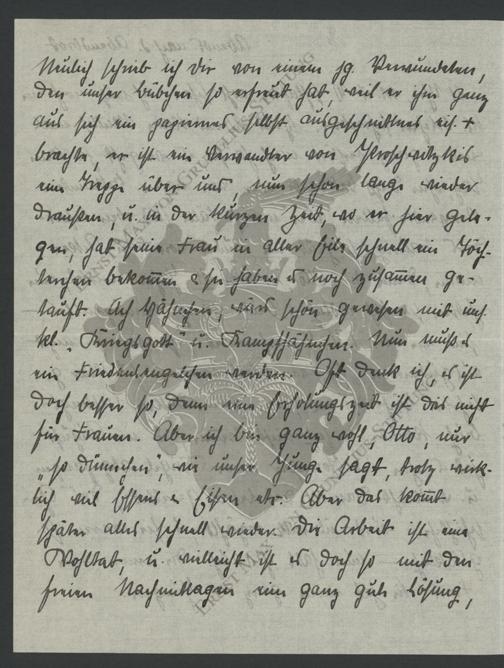 Neulich schrieb ich Dir von einem jg. Verwundeten,
den unser Bübchen so erfreut hat, weil er ihm ganz
aus sich ein papiernes selbst ausgeschnittnes eis. +
brachte, er ist ein Verwandter von
eine Treppe über uns, nun schon lange wieder
draußen, u. in der kurzen Zeit, wo er hier gele-
gen, hat seine Frau in aller Eile schnell ein Töch-
terchen bekommen & sie haben es noch zusammen ge-
tauft. Ach, wärs schön gewesen mit uns.
kl. "Kriegsgott" u. Kampfhähnchen. Nun muß es
ein Friedensengelchen werden. Oft denk ich, es ist
doch besser so, denn eine Erholungszeit ist das nicht
für Frauen. Aber ich bin ganz wohl, Otto, nur
"so dünnchen", wie unser Junge sagt, trotz wirk-
lich viel Essens & Eisen etc. Aber das kommt
später alles schnell wieder. Die Arbeit ist eine
Wohltat, u. vielleicht ist es doch so mit den
freien Nachmittagen eine ganz gute Lösung,